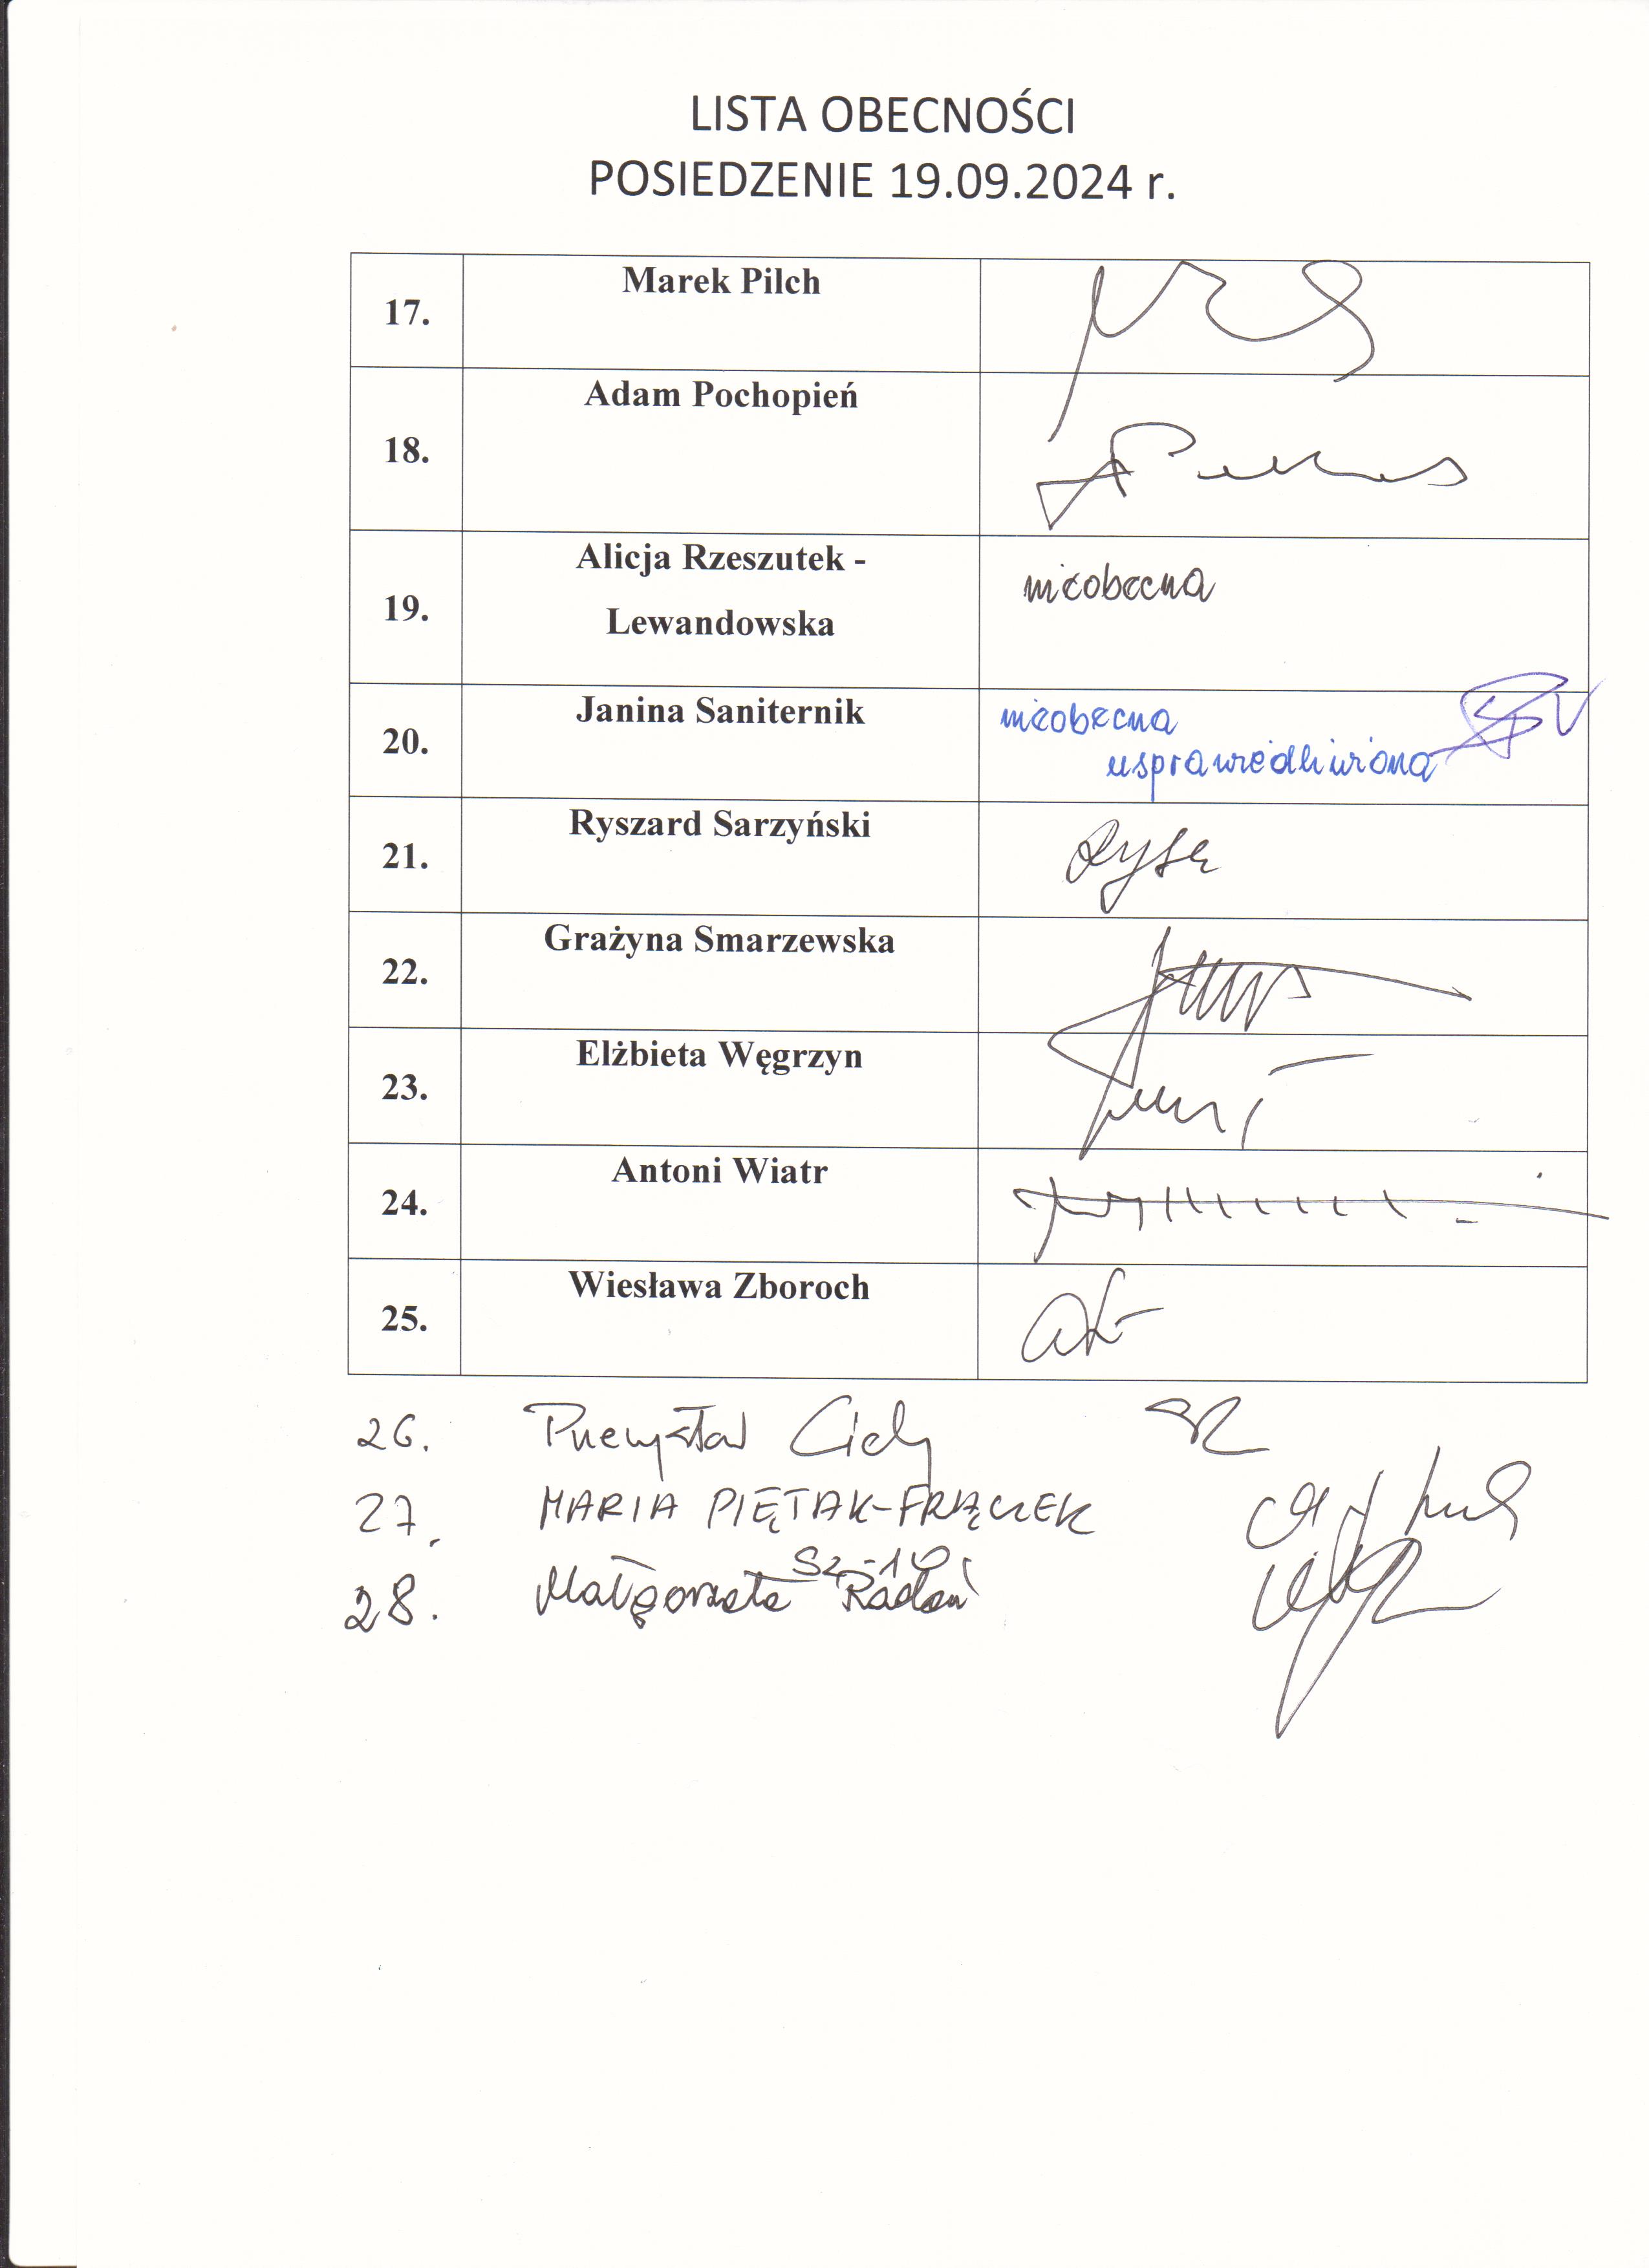 LISTA OBECNOŚCI
POSIEDZENIE 19.09.2024 r.
17. Marek Pilch
18. Adam Pochopień
19. Alicja Rzeszutek -
Lewandowska
nieobecna
20. Janina Saniternik nieobecna
usprawiedliwiona
21. Ryszard Sarzyński
22. Grażyna Smarzewska
23. Elżbieta Węgrzyn
24. Antoni Wiatr
25. Wiesława Zboroch
26. Przemysław
27. MARIA PIĘTAK-FRĄCZEK
28. Małgorzata Radoń